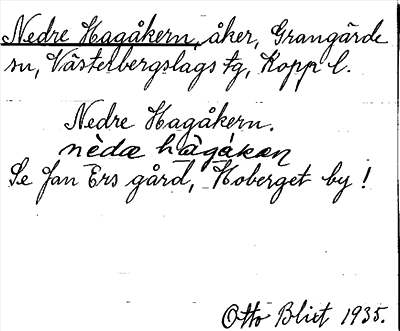 Nedre Hagåkern, åker, Grangärde
sn, Västerbergslags tg, Kopp l.
Nedre Hagåkern.
nèdæ hàgákæn
Se Jan Ers gård, Hoberget by!
Otto Blixt 1935.